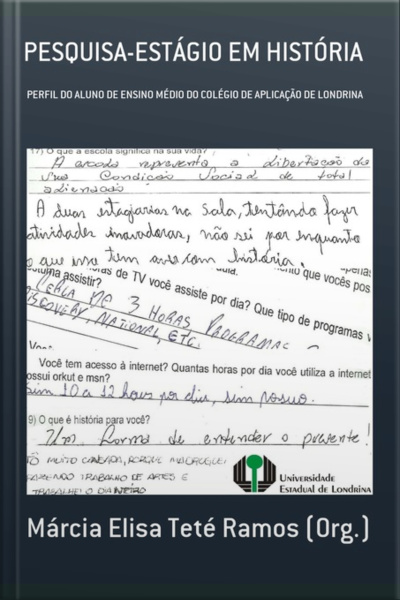 PESQUISA-ESTÁGIO EM HISTÓRIA
PERFIL DO ALUNO DE ENSINO MÉDIO DO COLÉGIO DE APLICAÇÃO DE LONDRINA
17) O que a escola significa na sua vida?
A escola representa a libertação da
sua Condição Social de total
alienação
A duas estagiarias na sala, tentando fazer
atividades inovadoras, não sei por enquanto
o que isso tem aver com história.
oras de TV você assiste por dia? Que tipo de programas v
ostuma assistir?
CERCA DE 3 HORAS PROGRAMAS
DISCOVERY, NATIONAL, ETC.
Você tem acesso à internet? Quantas horas por dia você utiliza a internet
ossui orkut e msn?
Sim 10 a 12 horas por dia, sim possuo.
9) O que é história para você?
Uma forma de entender o presente!
TÔ MUITO CANSADA, PORQUE MADRUGUEI
FAZENDO TRABALHO DE ARTES E
TRABALHEI O DIA INTEIRO
Universidade
Estadual de Londrina
Márcia Elisa Teté Ramos (Org.)